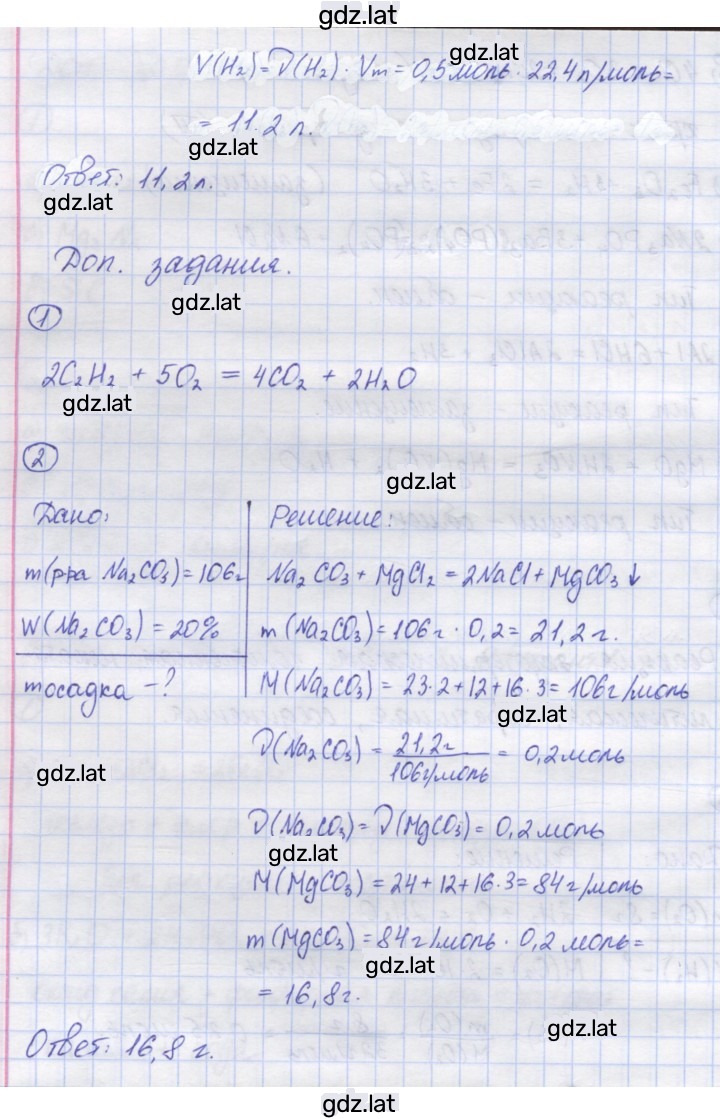 gdz.lat
V(H₂) = ν(H₂) · Vm = 0,5 моль · 22,4 л/моль =
gdz.lat
= 11.2 л.
gdz.lat
Ответ: 11,2 л.
gdz.lat
Доп. задания.
gdz.lat
1
2C₂H₂ + 5O₂ = 4CO₂ + 2H₂O
gdz.lat
2
gdz.lat
Дано:
m(р-ра Na₂CO₃) = 106г
W(Na₂CO₃) = 20%
mосадка - ?
Решение:
Na₂CO₃ + MgCl₂ = 2NaCl + MgCO₃ ↓
m(Na₂CO₃) = 106 г · 0,2 = 21,2 г.
M(Na₂CO₃) = 23·2+12+16·3 = 106г/моль
gdz.lat
ν(Na₂CO₃) = 21,2г / 106г/моль = 0,2 моль
gdz.lat
ν(Na₂CO₃) = ν(MgCO₃) = 0,2 моль
gdz.lat
M(MgCO₃) = 24+12+16·3 = 84 г/моль
m(MgCO₃) = 84 г/моль · 0,2 моль =
gdz.lat
= 16,8 г.
gdz.lat
Ответ: 16,8 г.
gdz.lat